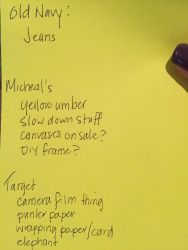 Old Navy:
Jeans
Micheal's
Yellow umber
Slow down stuff
Canvases on sale?
DIY frame?
Target
camera film thing
printer paper
wrapping paper/card
elephant